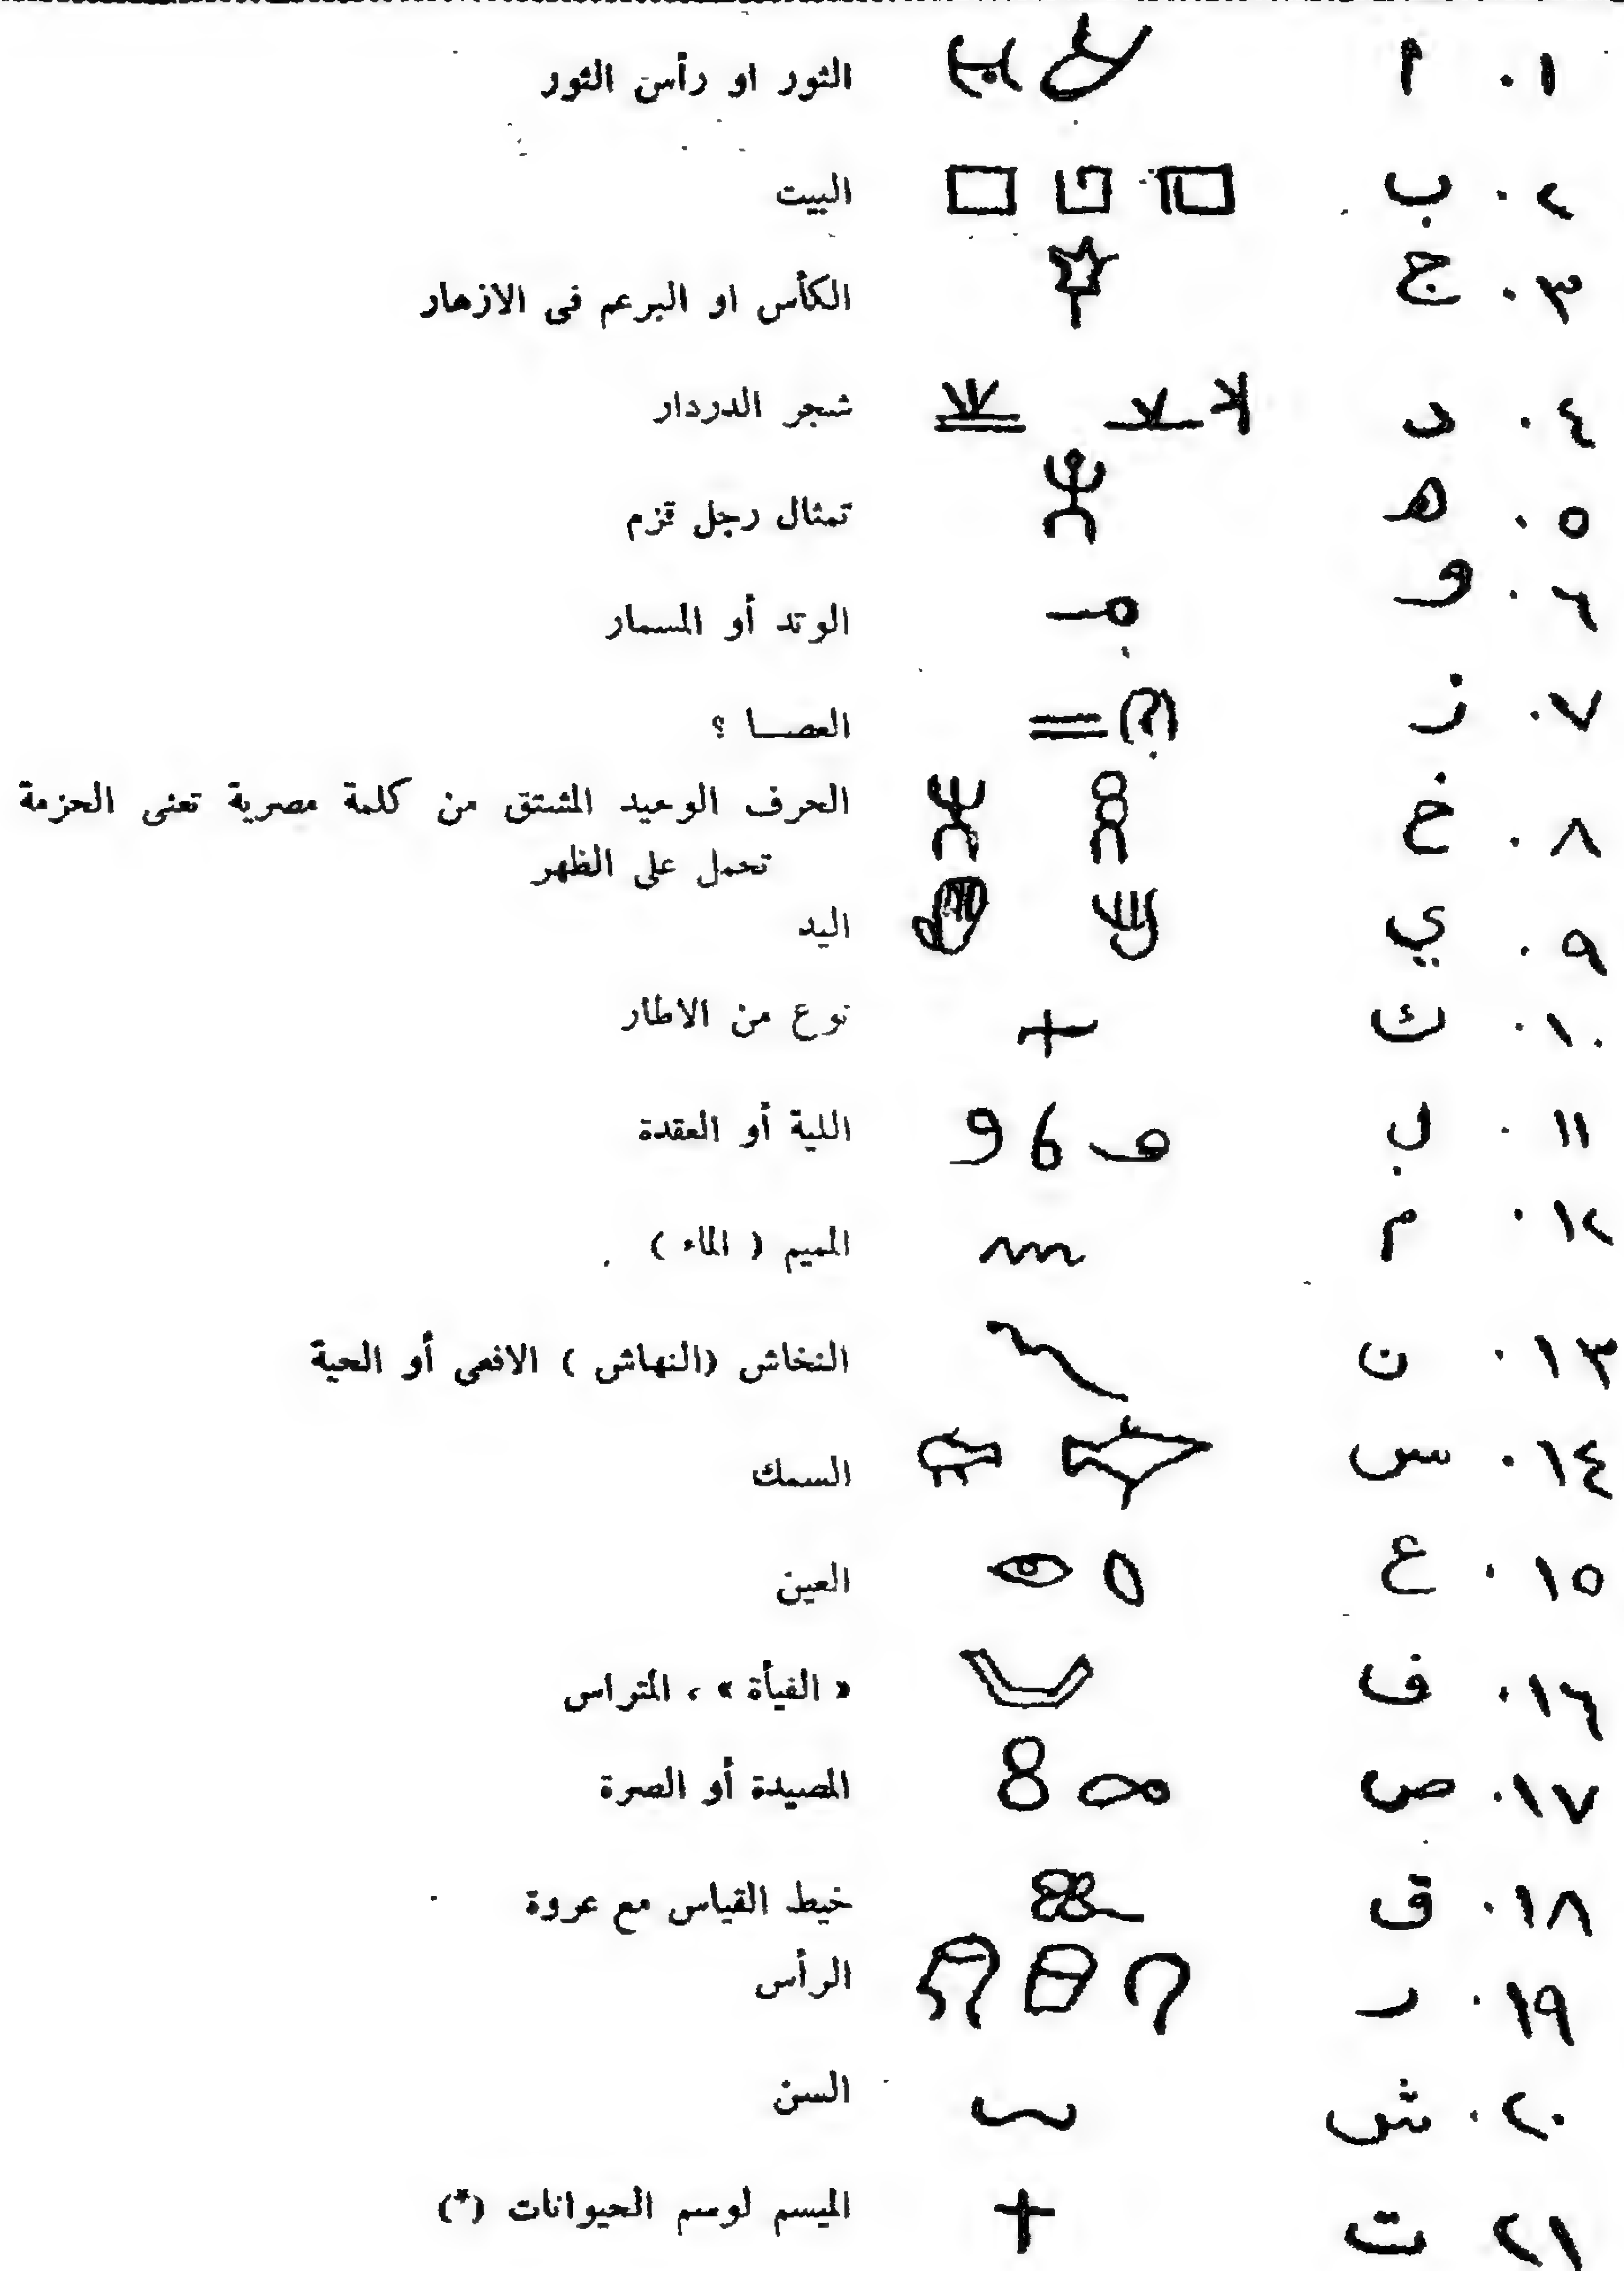 ١. أ الثور او رأس الثور
٢. ب البيت
٣. ج الكأس او البرعم فى الازهار
٤. د شجر الدردار
٥. ه تمثال رجل قزم
٦. و الوتد أو المسمار
٧. ز (؟) العصـــا ؟
٨. خ الحرف الوحيد المشتق من كلمة مصرية تعنى الحزمة
تحمل على الظهر
٩. ي اليد
١٠. ك نوع من الاطار
١١. ل اللية أو العقدة
١٢. م الميم ( الماء )
١٣. ن النخاش (النهاش ) الافعى أو الحية
١٤. س السمك
١٥. ع العين
١٦. ف « الفيأة » ، المتراس
١٧. ص المصيدة أو الصرة
١٨. ق خيط القياس مع عروة
١٩. ر الرأس
٢٠. ش السن
٢١ ت الميسم لوسم الحيوانات (*)